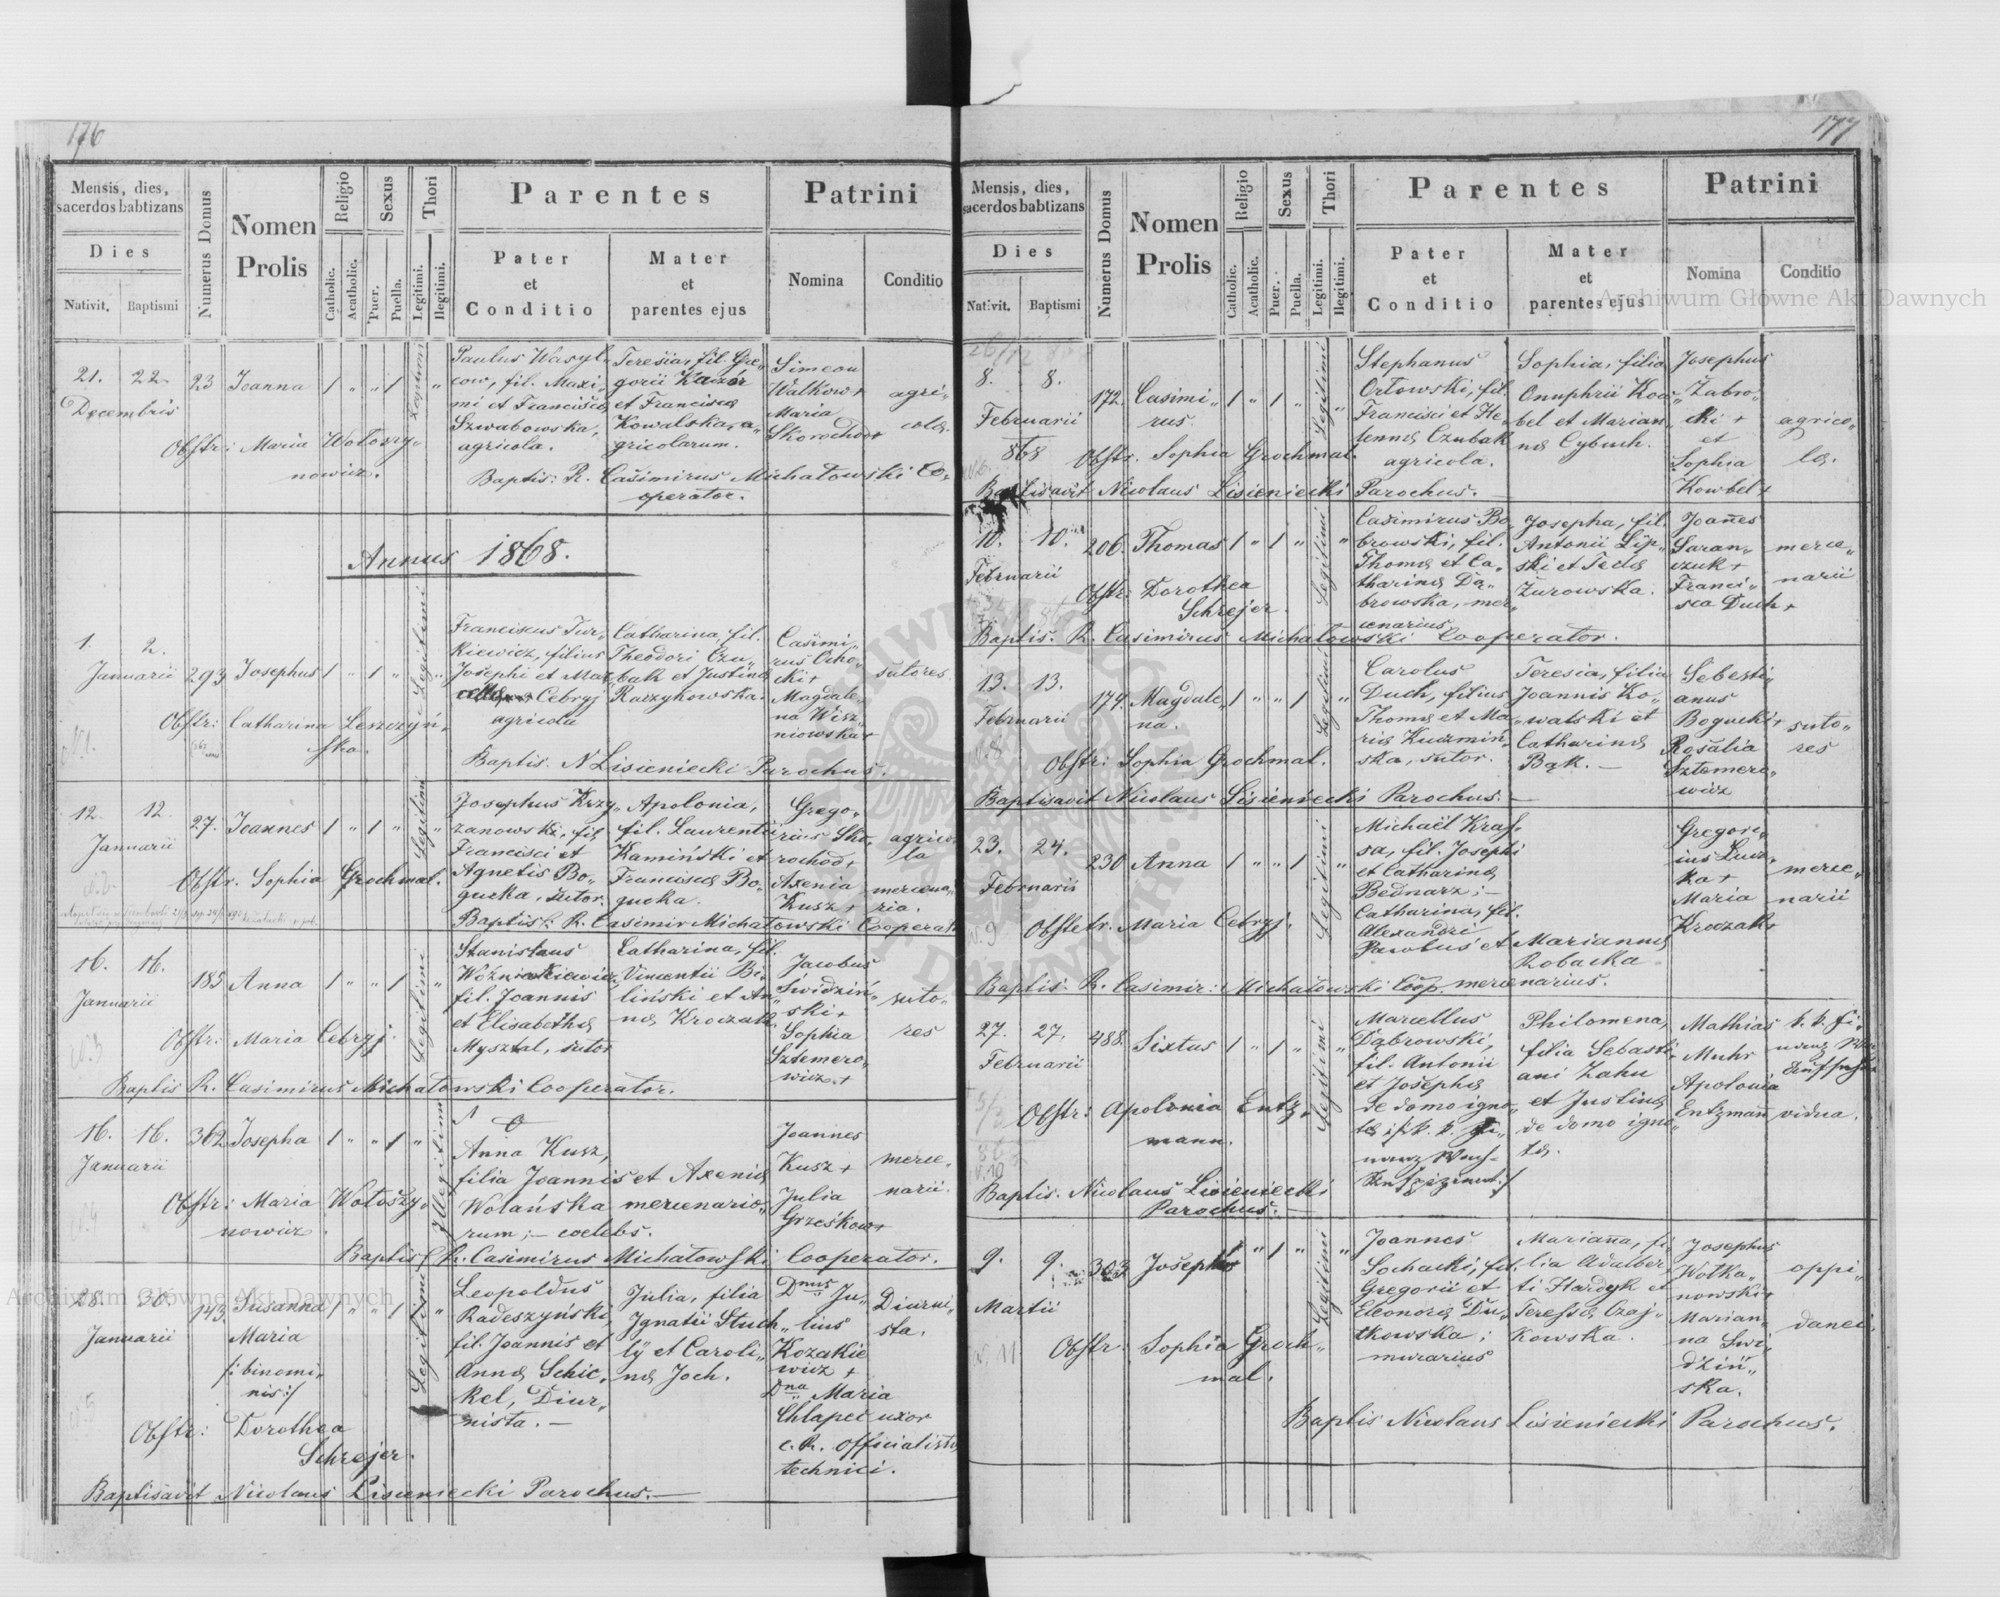 176
Mensis, dies, sacerdos babtizans
Dies
Nativit. Baptismi
Numerus Domus
Nomen Prolis
Religio
Catholic. Acatholic.
Sexus
Puer. Puella.
Thori
Legitimi. Illegitimi.
Parentes
Pater et Conditio
Mater et parentes ejus
Patrini
Nomina
Conditio
21. 22. Decembris
23 Joanna 1 " " 1 "
Paulus Wasyl-
cow, fil. Maxi-
mi et Francisca
Szwabowska,
agricola.
Teresia, fil. Gre-
gorii Kazór
et Francisca
Kowalska, a-
gricolarum.
Simeon
Walkow +
Maria
Skorochod +
agri-
cola.
Obstr: Maria Wołoszy-
nowicz.
Baptis: R. Casimirus Michałowski Co-
operator.
Annus 1868.
1. 2.
Januarii
293 Josephus 1 " 1 " Legitimi "
Franciscus Tur-
kiewicz, filius
Josephi et Mar-
Cebryj
agricola
Catharina, fil.
Theodori Czu-
bak et Justina
Raczykowska.
Casimi-
rus Ocho-
cki +
Magdale-
na Wisz-
niowska +
sutores
Obstr: Catharina Leszczyń-
ska.
Baptis. N Lisieniecki Parochus.
12. 12.
Januarii
27. Joannes 1 " 1 " Legitimi "
Josephus Krzy-
żanowski, fil.
Francisci et
Agnetis Bo-
gucka, sutor.
Apolonia,
fil. Laurentii
Kamiński et
Francisca Bo-
gucka.
Grego-
rius Sko-
rochod +
Axenia
Kusz +
agrico-
la
mercena-
ria.
Obstr. Sophia Grochmal.
Baptis: R. Casimir Michałowski Cooperat
16. 16.
Januarii
185 Anna 1 " " 1 Legitimi "
Stanislaus
Woźniakiewicz,
fil. Joannis
et Elisabetha
Mysztal, sutor
Catharina, fil.
Vincentii Bi-
liński et An-
na Kroczak
Jacobus
Świdziń-
ski +
Sophia
Sztemero-
wicz. +
suto-
res
Obstr: Maria Cebryj.
Baptis R. Casimirus Michałowski Cooperator.
16. 16.
Januarii
362 Josepha 1 " " 1 " Illegitimi
Anna Kusz,
filia Joannis et Axenia
Wolańska mercenario-
rum; – coelebs.
Joannes
Kusz +
Julia
Grześkow +
merce-
narii.
Obstr: Maria Wołoszy-
nowicz.
Baptis R. Casimirus Michałowski Cooperator.
28. 30.
Januarii
143. Susanna 1 " " 1 Legitimi "
Maria
/: binomi-
nis :/
Leopoldus
Radeszyński,
fil. Joannis et
Anna Schic-
kel, Diur-
nista. –
Julia, filia
Ignatii Stuch-
lÿ et Caroli-
na Joch.
Dnus Ju-
lius
Kozakie
wicz +
Dna Maria
Chlapec uxor
c. R. officialista
technici.
Diurni-
sta.
Obstr: Dorothea
Schrejer.
Baptisavit Nicolaus Lisieniecki Parochus. –
177
Mensis, dies, sacerdos babtizans
Dies
Nativit. Baptismi
Numerus Domus
Nomen Prolis
Religio
Catholic. Acatholic.
Sexus
Puer. Puella.
Thori
Legitimi. Illegitimi.
Parentes
Pater et Conditio
Mater et parentes ejus
Patrini
Nomina
Conditio
8. 8.
Februarii
868
172. Casimi-
rus. 1 " 1 " Legitimi "
Stephanus
Orłowski, fil.
Francisci et He-
lenna Czubak
agricola.
Sophia, filia
Onuphrii Kow-
bel et Marian-
na Cybuch.
Josephus
Zabro-
cki +
et
Sophia
Kowbel +
agrico-
la.
Obstr. Sophia Grochmal.
Baptisavit Nicolaus Lisieniecki Parochus. –
10. 10.
Februarii
206. Thomas 1 " 1 " Legitimi "
Casimirus Bo-
browski, fil.
Thoma et Ca-
tharina Dą-
browska, mer-
cenarius
Josepha, fil.
Antonii Lip-
ski et Tecla
Żurowska.
Joanes
Saran-
czuk +
Franci-
sca Duch +
merce-
narii
Obstr: Dorothea
Schrejer.
Baptis. R. Casimirus Michałowski Cooperator.
13. 13.
Februarii
174. Magdale-
na. 1 " " 1 Legitimi "
Carolus
Duch, filius
Thoma et Ma-
ria Kuzmiń-
ska, sutor.
Teresia, filia
Joannis Ko-
walski et
Catharina
Bąk. –
Sebesti-
anus
Bogucki +
Rosalia
Sztemero-
wicz
suto-
res
Obstr: Sophia Grochmal.
Baptisavit Nicolaus Lisieniecki Parochus. –
23. 24.
Februarii
230 Anna 1 " " 1 Legitimi "
Michaël Kras-
sa, fil. Josephi
et Catharina
Bednarz; –
Catharina, fil.
Alexandri
Jacobus et Marianna
Robacka
mercenarius.
Gregori-
ius Lucz-
ka +
Maria
Kroczak +
merce-
narii
Obstetr. Maria Cebryj.
Baptis. R. Casimir: Michałowski Coop.
27. 27.
Februarii
488. Sixtus 1 " 1 " Legitimi "
Marcellus
Dąbrowski,
fil. Antonii
et Josepha
de domo igno-
ta
Philomena,
filia Sebasti-
ani Zahn
et Justina
de domo igno-
ta.
Mathias
Muhr
Apolonia
Entzmann
k. k. Fi-
nanz
vidua.
Obstr: Apolonia Entz-
mann.
Baptis. Nicolaus Lisieniecki
Parochus. –
9. 9.
Martii
303 Joseph " 1 " Legitimi "
Joannes
Sochacki, fil.
Gregorii et
Eleonora Du-
tkowska;
murarius
Mariana, fi-
lia Adalber-
ti Hardyk et
Teressa Czaj-
kowska.
Josephus
Wołka-
nowski +
Marian-
na Swi-
dziń-
ska.
oppi-
danei.
Obstr: Sophia Groch-
mal.
Baptis Nicolaus Lisieniecki Parochus.
Archiwum Główne Akt Dawnych
Archiwum Główne Akt Dawnych